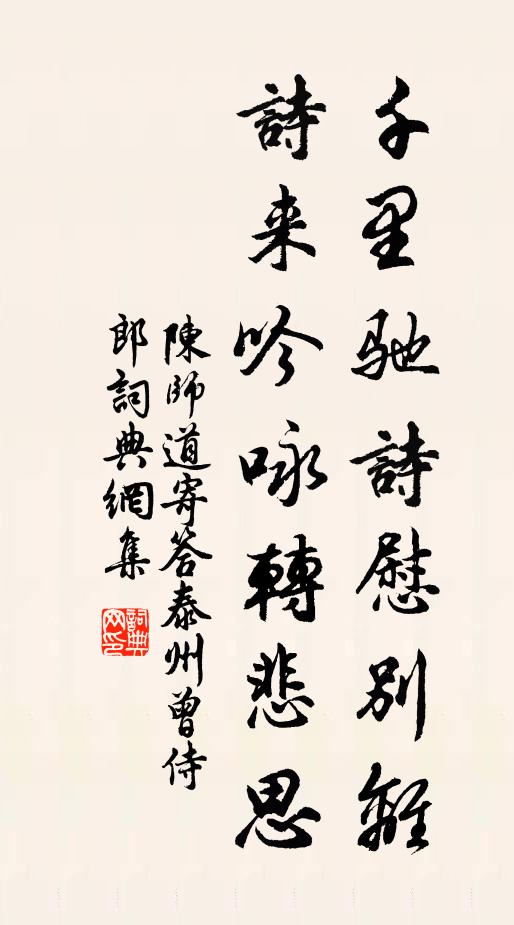 千里馳詩慰別離
詩来吟咏轉悲思
陳師道寄答泰州曾侍
郎詞典網集
詞典网印